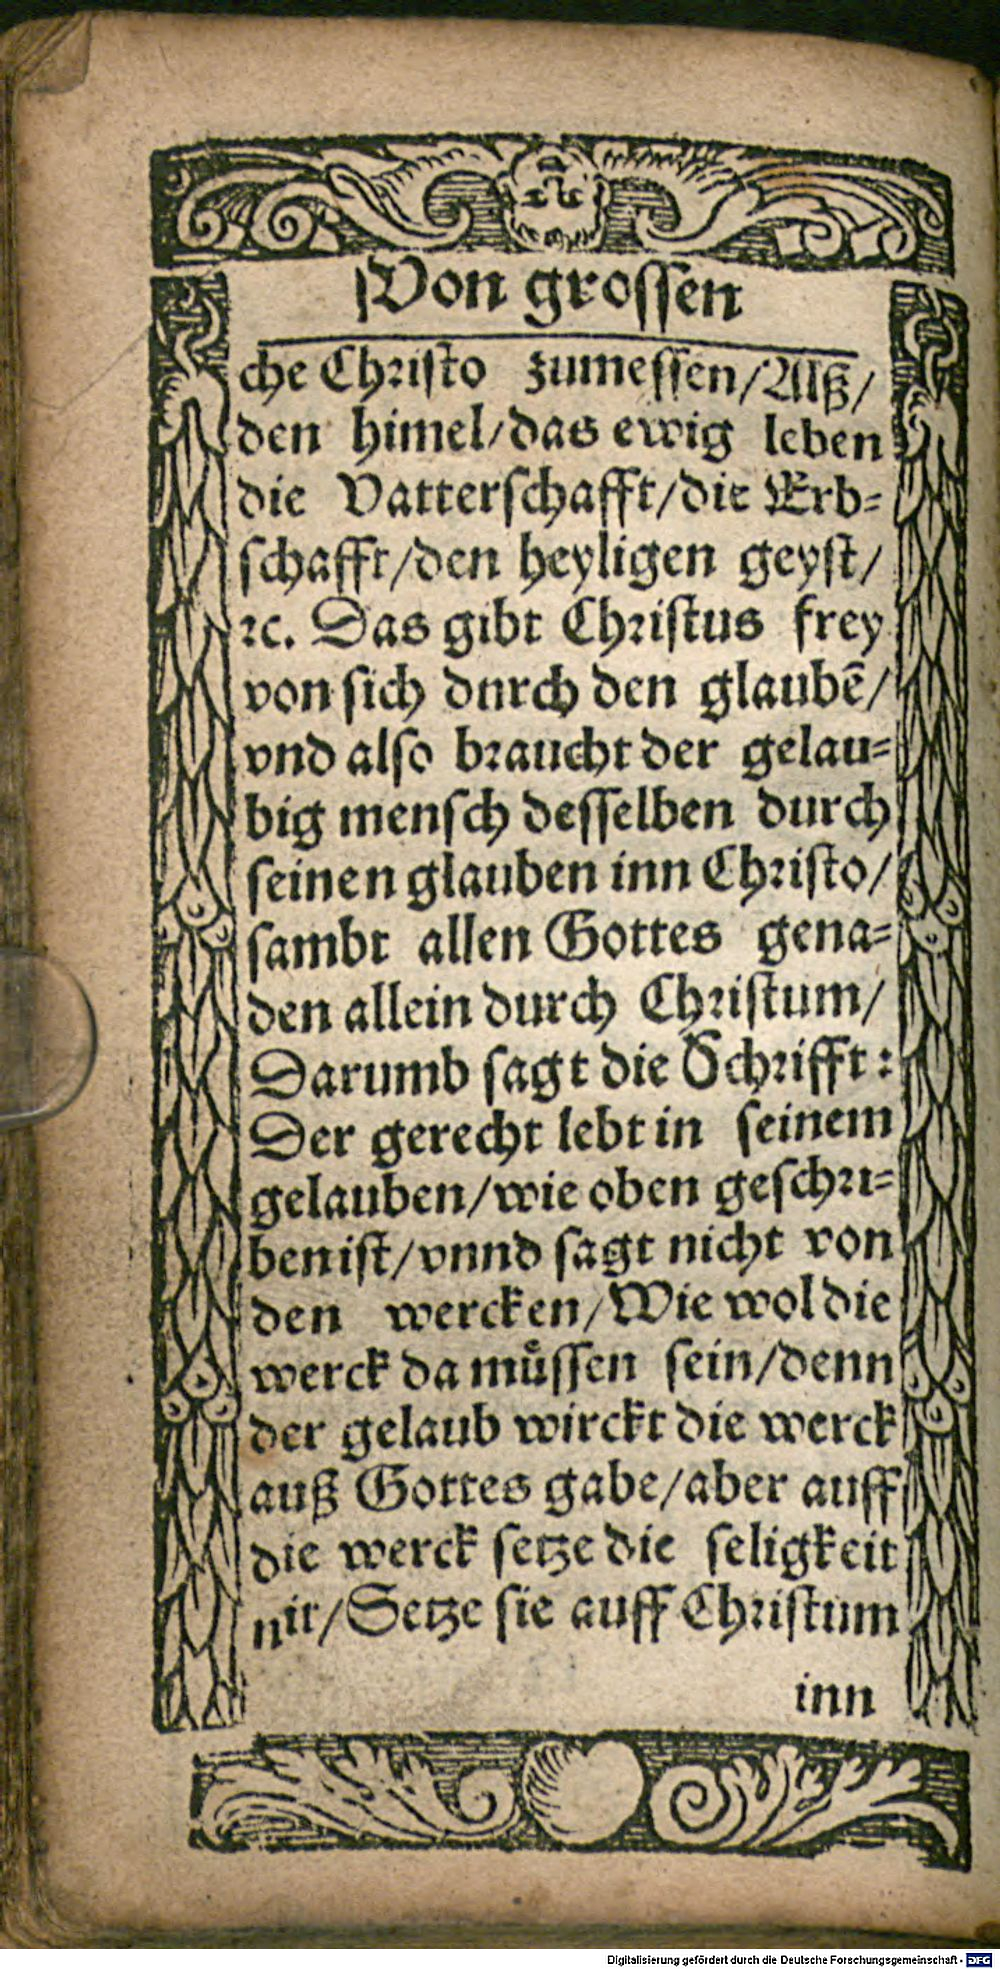 Von grossen
che Christo zumessen/Alß/
den himel/das ewig leben
die Vatterschafft/die Erb⸗
schafft/den heyligen geyst/
ꝛc. Das gibt Christus frey
von sich durch den glaubẽ/
vnd also braucht der gelau⸗
big mensch desselben durch
seinen glauben inn Christo/
sambt allen Gottes gena⸗
den allein durch Christum/
Darumb sagt die Schrifft:
Der gerecht lebt in seinem
gelauben/wie oben geschri⸗
ben ist/vnnd sagt nicht von
den wercken/Wie wol die
werck da muͤssen sein/denn
der gelaub wirckt die werck
auß Gottes gabe/aber auff
die werck setze die seligkeit
nit/Setze sie auff Christum
inn
Digitalisierung gefördert durch die Deutsche Forschungsgemeinschaft - DFG